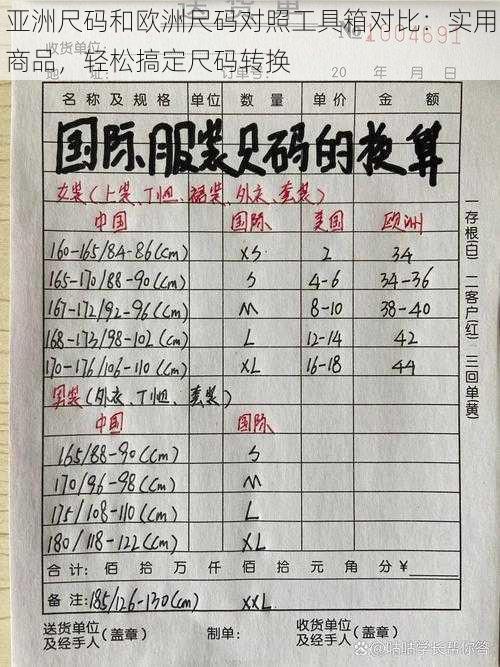 亚洲尺码和欧洲尺码对照工具箱对比：实用商品，轻松搞定尺码转换
送货单
收货单位：
№1004691
订单号码：
20 年 月 日
名称及规格 单位 数量 单价 金额
国际服装尺码的换算
女装(上装、T恤、裙装、外衣、套装)
中国 国际 美国 欧洲
160-165/84-86(cm) XS 2 34
165-170/88-90(cm) S 4-6 34-36
167-172/92-96(cm) M 8-10 38-40
168-173/98-102(cm) L 12-14 42
170-176/106-110(cm) XL 16-18 44
男装(外衣、T恤、套装)
中国 国际
165/88-90(cm) S
170/96-98(cm) M
175/108-110(cm) L
180/118-122(cm) XL
合计： 佰 拾 万 仟 佰 拾 元 角 分 ¥
备注：185/126-130(cm) XXL
送货单位及经手人(盖章) 制单： 收货单位及经手人(盖章)
一存根(白) 二客户(红) 三回单(黄)
@咕咕学长帮你答